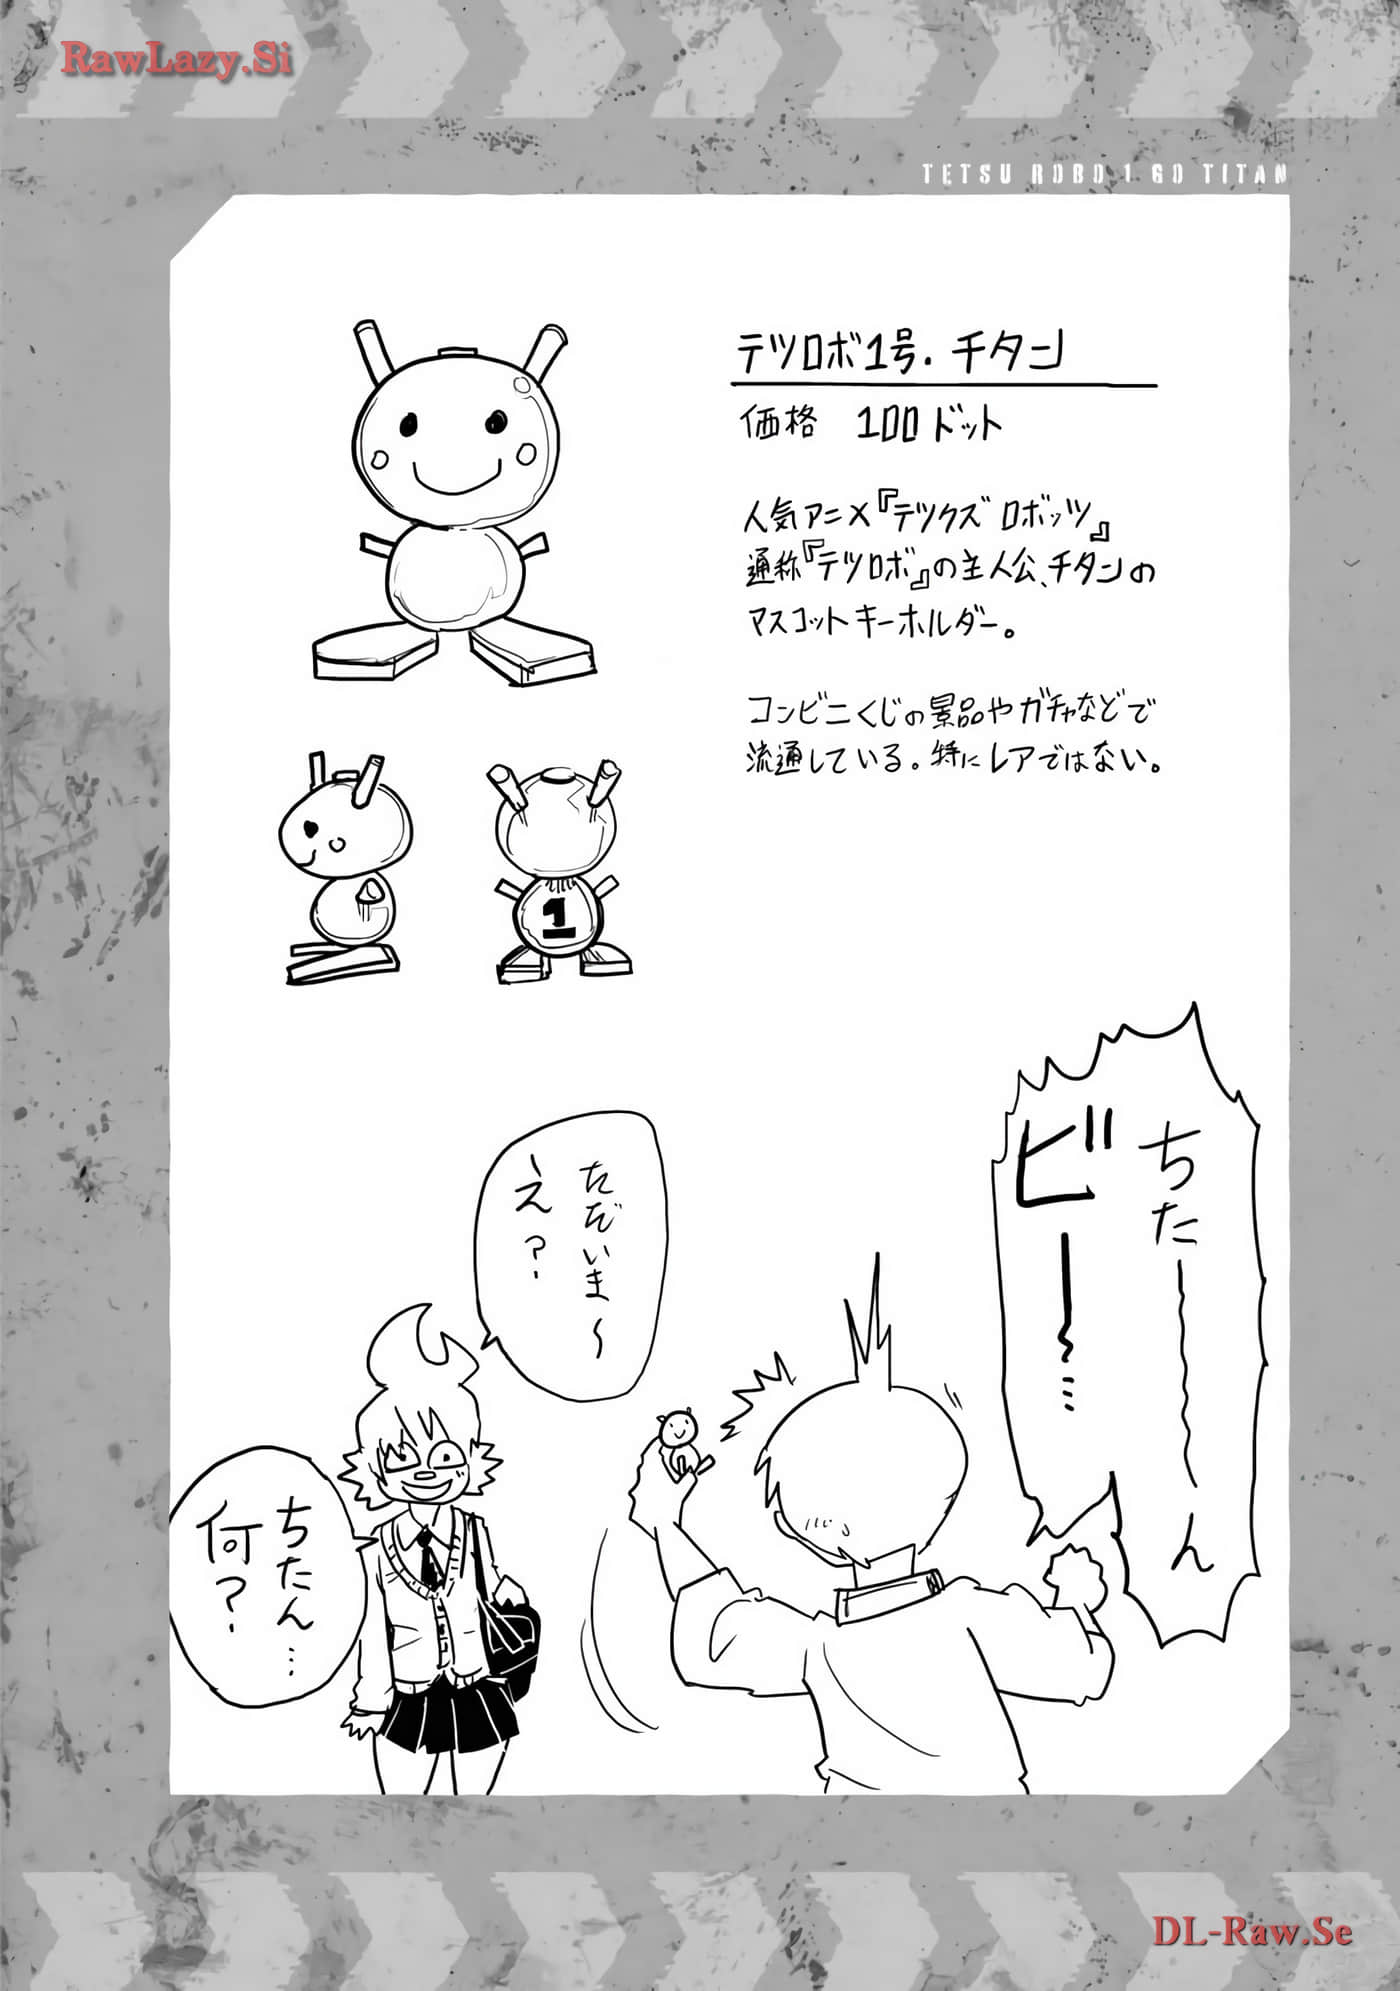 RawLazy.Si
TETSU ROBO 1 GO TITAN
テツロボ1号・チタン
価格 100ドット
人気アニメ『テツクズロボッツ』
通称『テツロボ』の主人公、チタンの
マスコットキーホルダー。
コンビニくじの景品やガチャなどで
流通している。特にレアではない。
1
ちたーーーん
ビーー〜…
ただいま〜
え？
ちたん…
何？
DL-Raw.Se